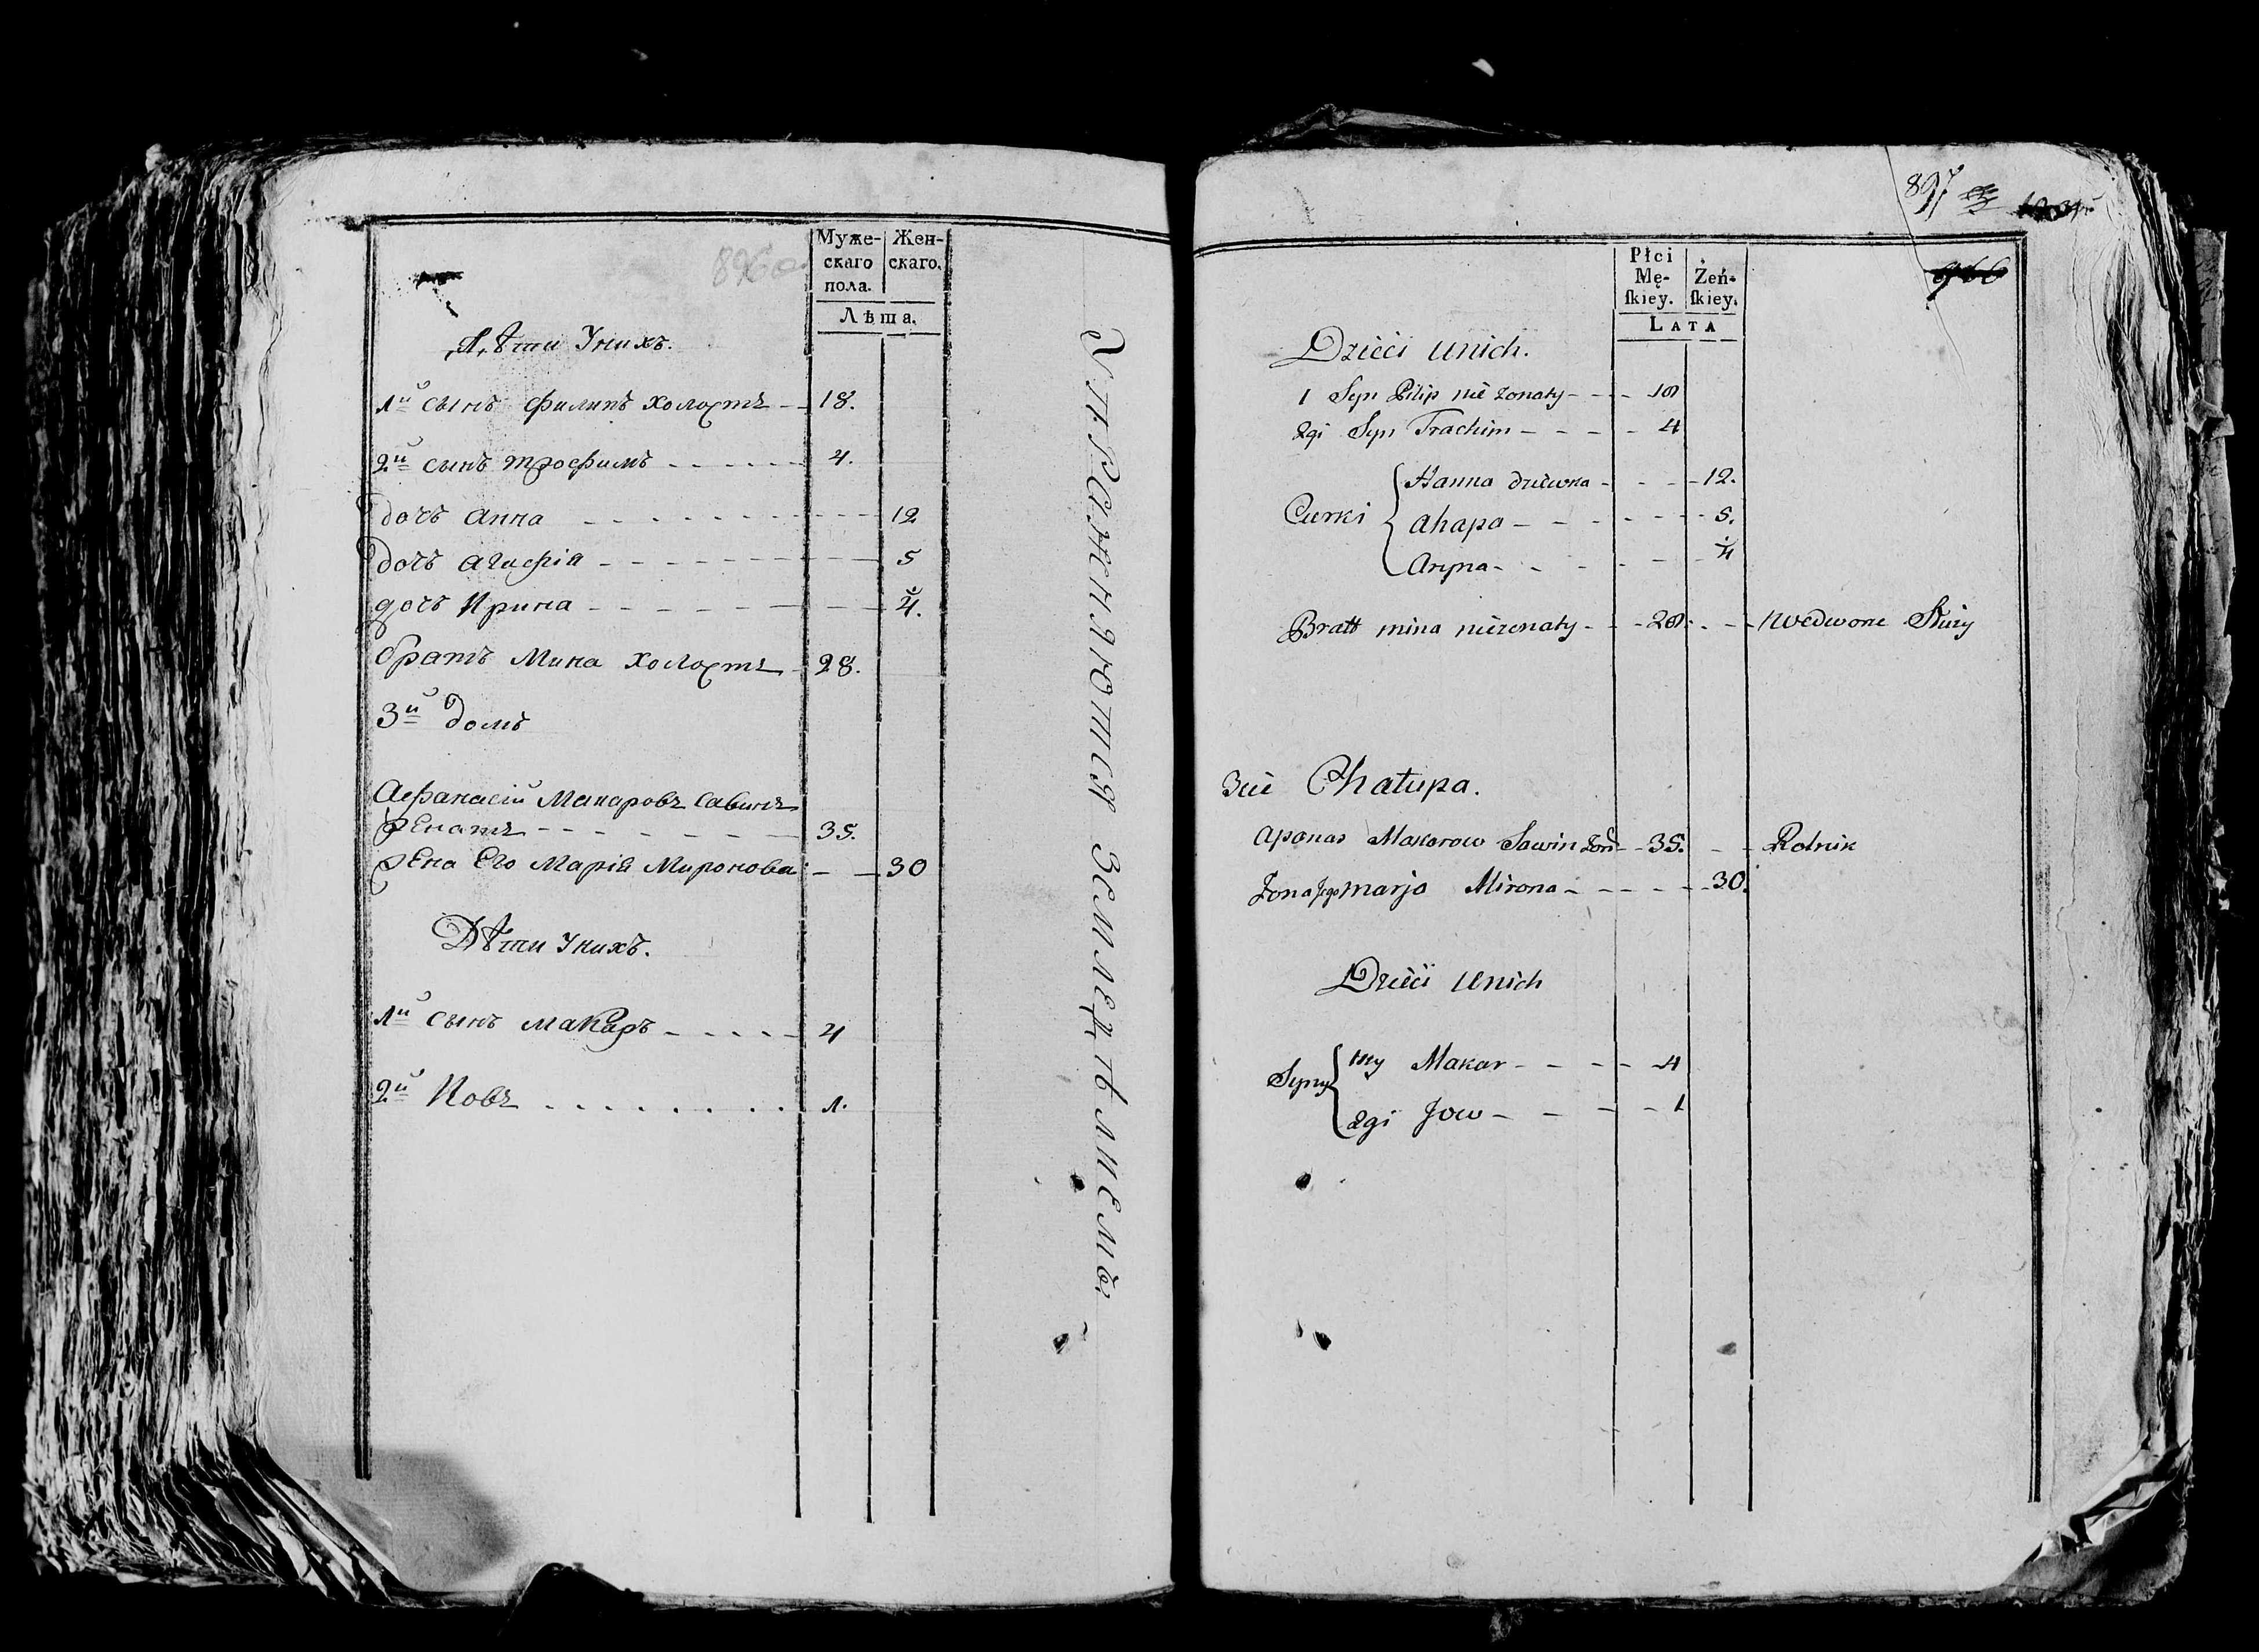 896 об
Муже-
скаго
пола.
Жен-
скаго.
Лѣта.
Дѣти Унихъ.
1й сынъ Филипъ холостъ - - 18.
2й сынъ трофимъ - - - - - - 4.
дочь Анна - - - - - - - - - 12
дочь Агафія - - - - - - - - 5
дочь Ирина - - - - - - - - 4.
братъ Мина холостъ - 28.
3й домъ
Афанасій Макаровъ Савинъ
женатъ - - - - - - - 35.
жена Его Марія Миронова - - 30
Дѣти Унихъ.
1й сынъ Макаръ - - - - - 4
2й Иовъ . . . . . . . . . 1.
Упражняются земледѣлиемъ
897
966
Płci
Mę-
ſkiey.
Żeń-
ſkiey.
LATA
Dzieci unich.
1 Syn Pilip nie żonaty - - - - 18
2gi Syn Trachim - - - - - 4
Curki
Hanna dziewka - - - - 12.
Ahapa - - - - - - - 5.
Aryna - - - - - - 4
Bratt mina nieżonaty - - - 28. - - - Wedworze Służy
3cie Chałupa.
Aponas Makarow Sawin Żon - - 35. - - - Rolnik
Żona Jego marja Mirona - - - - - - 30.
Dzieci Unich
Syny
1szy Makar - - - - - 4
2gi Jow - - - - - 1